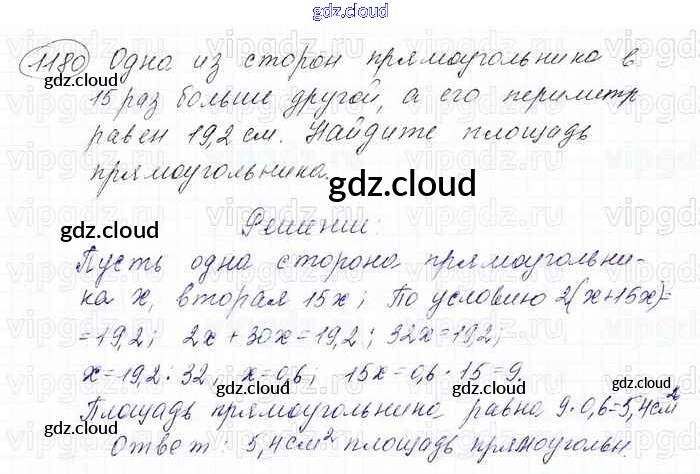 gdz.cloud
1180 Одна из сторон прямоугольника в
gdz.cloud
15 раз больше другой, а его периметр
равен 19,2 см. Найдите площадь
прямоугольника.
gdz.cloud
gdz.cloud
Решение:
Пусть одна сторона прямоугольни-
ка x, вторая 15x; По условию 2(x+15x)=
=19,2; 2x+30x=19,2; 32x=19,2;
gdz.cloud
gdz.cloud
x=19,2:32, x=0,6; 15x=0,6·15=9
gdz.cloud
gdz.cloud
Площадь прямоугольника равна 9·0,6=5,4см²
Ответ: 5,4см² площадь прямоугольн.
gdz.cloud
gdz.cloud